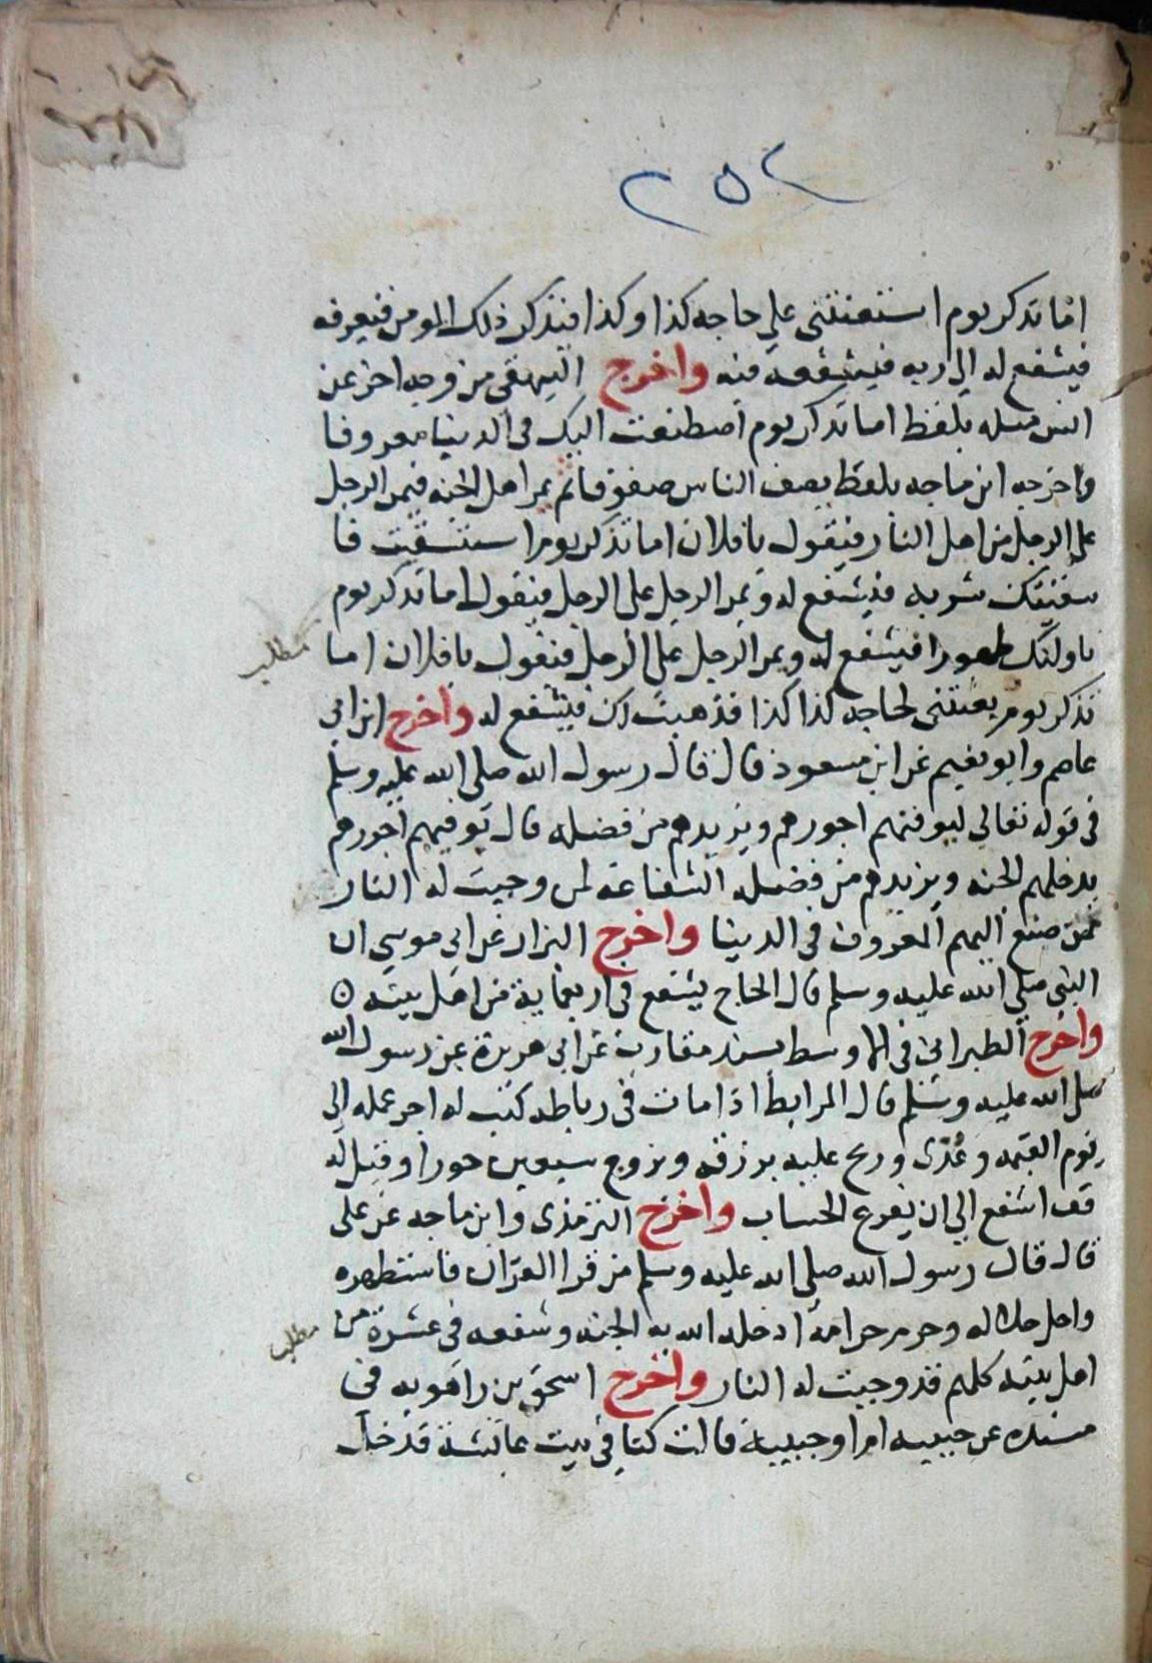 ٢٥٢
اما تذكر يوم استعنتنى على حاجه كذا وكذا فتذكر ذلك المومن فيعرفه
فيشفع له الى ربه فيشفعه فيه واخرج البيهقى من وجه اخر عن
انس مثله بلفظ اما تذكر يوم اصطنعت اليك فى الدنيا معروفا
واخرجه ابن ماجه بلفظ يصف الناس صفوفا ثم يمر اهل الجنه فيمر الرجل
على الرجل من اهل النار فيقول يا فلان اما تذكر يوم استسقيت فا
سقيتك شربه فيشفع له ويمر الرجل على الرجل فيقول اما تذكر يوم
ناولتك طهورا فيشفع له ويمر الرجل على الرجل فيقول يا فلان اما
مطلب
تذكر يوم بعثتنى لحاجه كذا كذا فذهبت لك فيشفع له واخرج ابن ابى
عاصم وابو نعيم عن ابن مسعود قال قال رسول الله صلى الله عليه وسلم
فى قوله تعالى ليوفيهم اجورهم ويزيدهم من فضله قال يوفيهم اجورهم
يدخلهم الجنه ويزيدهم من فضله الشفاعه لمن وجبت له النار
ممن صنع اليهم المعروف فى الدنيا واخرج البزار عن ابى موسى ان
النبى صلى الله عليه وسلم قال الحاج يشفع فى اربعماية من اهل بيته ه
واخرج الطبرانى فى الاوسط بسند مقارب عن ابى هريرة عن رسول الله
صلى الله عليه وسلم قال المرابط اذا مات فى رباطه كتب له اجر عمله الى
يوم القيمه وغدى وريح عليه برزقه ويزوج سبعين حورا وقيل له
قف اشفع الى ان يفرغ الحساب واخرج الترمذى وابن ماجه عن على
قال قال رسول الله صلى الله عليه وسلم من قرا القران فاستظهره
واحل حلاله وحرم حرامه ادخله الله به الجنه وشفعه فى عشرة من
مطلب
اهل بيته كلهم قد وجبت له النار واخرج اسحق بن راهويه فى
مسنده عن حبيبه او ام حبيبة قالت كنا فى بيت عائشة فدخل